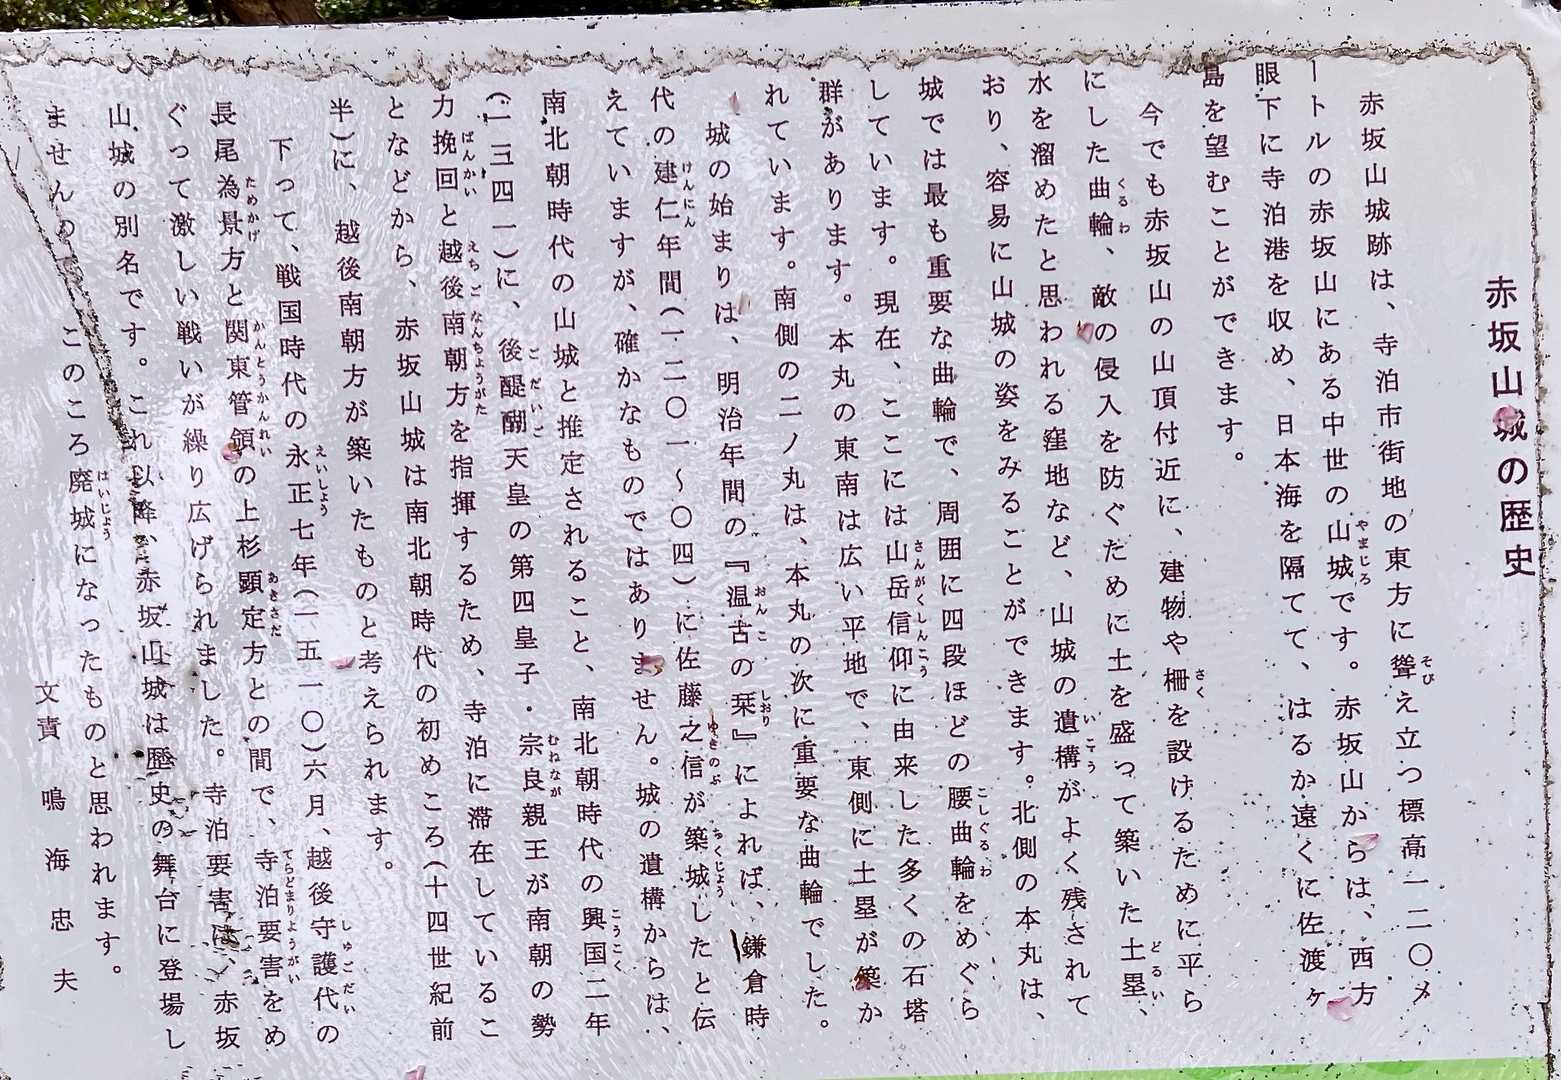 赤坂山城の歴史
赤坂山城跡は、寺泊市街地の東方に聳え立つ標高一二〇メ
ートルの赤坂山にある中世の山城です。赤坂山からは、西方
眼下に寺泊港を収め、日本海を隔てて、はるか遠くに佐渡ヶ
島を望むことができます。
今でも赤坂山の山頂付近に、建物や柵を設けるために平ら
にした曲輪、敵の侵入を防ぐために土を盛って築いた土塁、
水を溜めたと思われる窪地など、山城の遺構がよく残されて
おり、容易に山城の姿をみることができます。北側の本丸は、
城では最も重要な曲輪で、周囲に四段ほどの腰曲輪をめぐら
しています。現在、ここには山岳信仰に由来した多くの石塔
群があります。本丸の東南は広い平地で、東側に土塁が築か
れています。南側の二ノ丸は、本丸の次に重要な曲輪でした。
城の始まりは、明治年間の『温古の栞』によれば、鎌倉時
代の建仁年間(一二〇一～〇四)に佐藤之信が築城したと伝
えていますが、確かなものではありません。城の遺構からは、
南北朝時代の山城と推定されること、南北朝時代の興国二年
(一三四一)に、後醍醐天皇の第四皇子・宗良親王が南朝の勢
力挽回と越後南朝方を指揮するため、寺泊に滞在しているこ
となどから、赤坂山城は南北朝時代の初めころ(十四世紀前
半)に、越後南朝方が築いたものと考えられます。
下って、戦国時代の永正七年(一五一〇)六月、越後守護代の
長尾為景方と関東管領の上杉顕定方との間で、寺泊要害をめ
ぐって激しい戦いが繰り広げられました。寺泊要害は、赤坂
山城の別名です。これ以降、赤坂山城は歴史の舞台に登場し
ませんので、このころ廃城になったものと思われます。
文責 鳴海忠夫